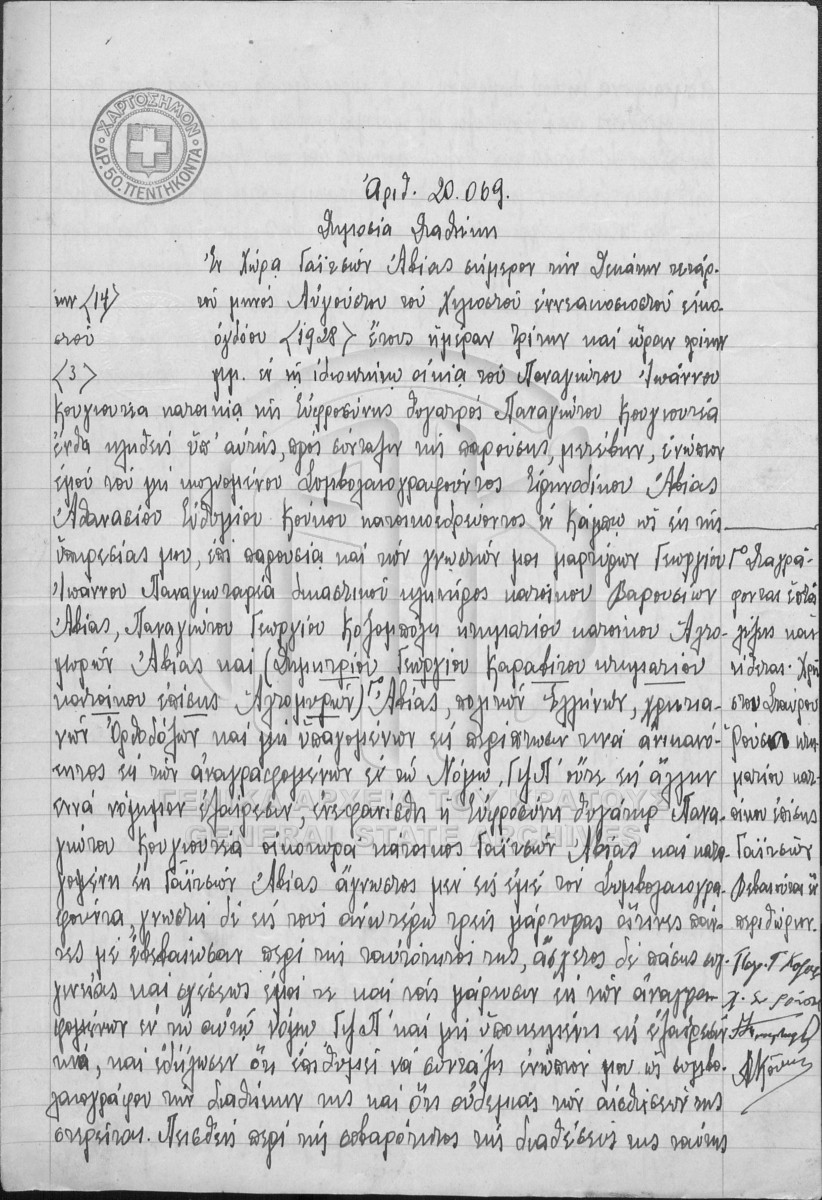 ΧΑΡΤΟΣΗΜΟΝ
ΔΡ. 50. ΠΕΝΤΗΚΟΝΤΑ
Ἀριθ. 20.069.
Δημοσία Διαθήκη
Ἐν Χώρᾳ Γαϊτσῶν Ἀβίας σήμερον τὴν δεκάτην τετάρ-
την <14> τοῦ μηνός Αὐγούστου τοῦ χιλιοστοῦ ἐννεακοσιοστοῦ εἰκο-
στοῦ ὀγδόου <1928> ἔτους ἡμέραν Τρίτην καί ὥραν τρίτην
<3> μ.μ. ἐν τῇ ἰδιοκτήτῳ οἰκίᾳ τοῦ Παναγιώτου Ἰωάννου
Κουγιουτέα κατοικίᾳ τῆς Εὐφροσύνης θυγατρός Παναγιώτου Κουγιουτέα
ἔνθα κληθείς ὑπ' αὐτῆς, πρός σύνταξιν τῆς παρούσης, μετέβην, ἐνώπιον
ἐμοῦ τοῦ μή κωλυομένου Συμβολαιογραφοῦντος Εἰρηνοδίκου Ἀβίας
Ἀθανασίου Εὐθυμίου Κούκου κατοικοεδρεύοντος ἐν Κάμπῳ ὡς ἐκ τῆς
ὑπηρεσίας μου, ἐπί παρουσίᾳ καί τῶν γνωστῶν μοι μαρτύρων Γεωργίου
Ἰωάννου Παναγιωταρέα δικαστικοῦ κλητῆρος κατοίκου Βαρουσίων
Ἀβίας, Παναγιώτου Γεωργίου Κοζομπόλη κτηματίου κατοίκου Ἀλτο-
μιρῶν Ἀβίας καί (Δημητρίου Γεωργίου Καραβίτου κτηματίου
κατοίκου ἐπίσης Ἀλτομιρῶν) Γο Ἀβίας, πολιτῶν Ἑλλήνων, χριστια-
νῶν Ὀρθοδόξων καί μή ὑπαγομένων εἰς περίπτωσίν τινα ἀνικανό-
τητος ἐκ τῶν ἀναγραφομένων ἐν τῷ Νόμῳ ΓΥΛΠ' οὔτε εἰς ἄλλην
τινά νόμιμον ἐξαίρεσιν, ἐνεφανίσθη ἡ Εὐφροσύνη θυγάτηρ Πανα-
γιώτου Κουγιουτέα οἰκοκυρά κάτοικος Γαϊτσῶν Ἀβίας καί κατα-
γομένη ἐκ Γαϊτσῶν Ἀβίας ἄγνωστος μέν εἰς ἐμέ τόν Συμβολαιογρα-
φοῦντα, γνωστή δέ εἰς τούς ἀνωτέρω τρεῖς μάρτυρας οἵτινες πάν-
τες μέ ἐβεβαίωσαν περί τῆς ταὐτότητός της, ἄσχετος δέ πάσης συγ-
γενείας καί σχέσεως ἐμοί τε καί τοῖς μάρτυσιν ἐκ τῶν ἀναγρα-
φομένων ἐν τῷ αὐτῷ νόμῳ ΓΥΛΠ' καί μή ὑποκειμένη εἰς ἐξαίρεσίν
τινά, καί ἐδήλωσεν ὅτι ἐπιθυμεῖ νά συντάξῃ ἐνώπιόν μου ὡς συμβο-
λαιογράφου τήν διαθήκην της καί ὅτι οὐδεμιᾶς τῶν αἰσθήσεών της
στερεῖται. Πεισθείς περί τῆς σοβαρότητος τῆς διαθέσεώς της ταύτης
Γο Διαγρά-
φονται ἑπτά
λέξεις καί
τίθεται. Χρή-
στου Σταύρου
Ρούσ κτη-
ματίου κατ-
οίκου ἐπίσης
Γαϊτσῶν
Βεβαιοῦται ἐν
περιθωρίῳ.
Παν. Γ. Κοζομ
Χ. Σ.
ΑΚοῦκος
ΓΕΝΙΚΑ ΑΡΧΕΙΑ ΤΟΥ ΚΡΑΤΟΥΣ
GENERAL STATE ARCHIVES